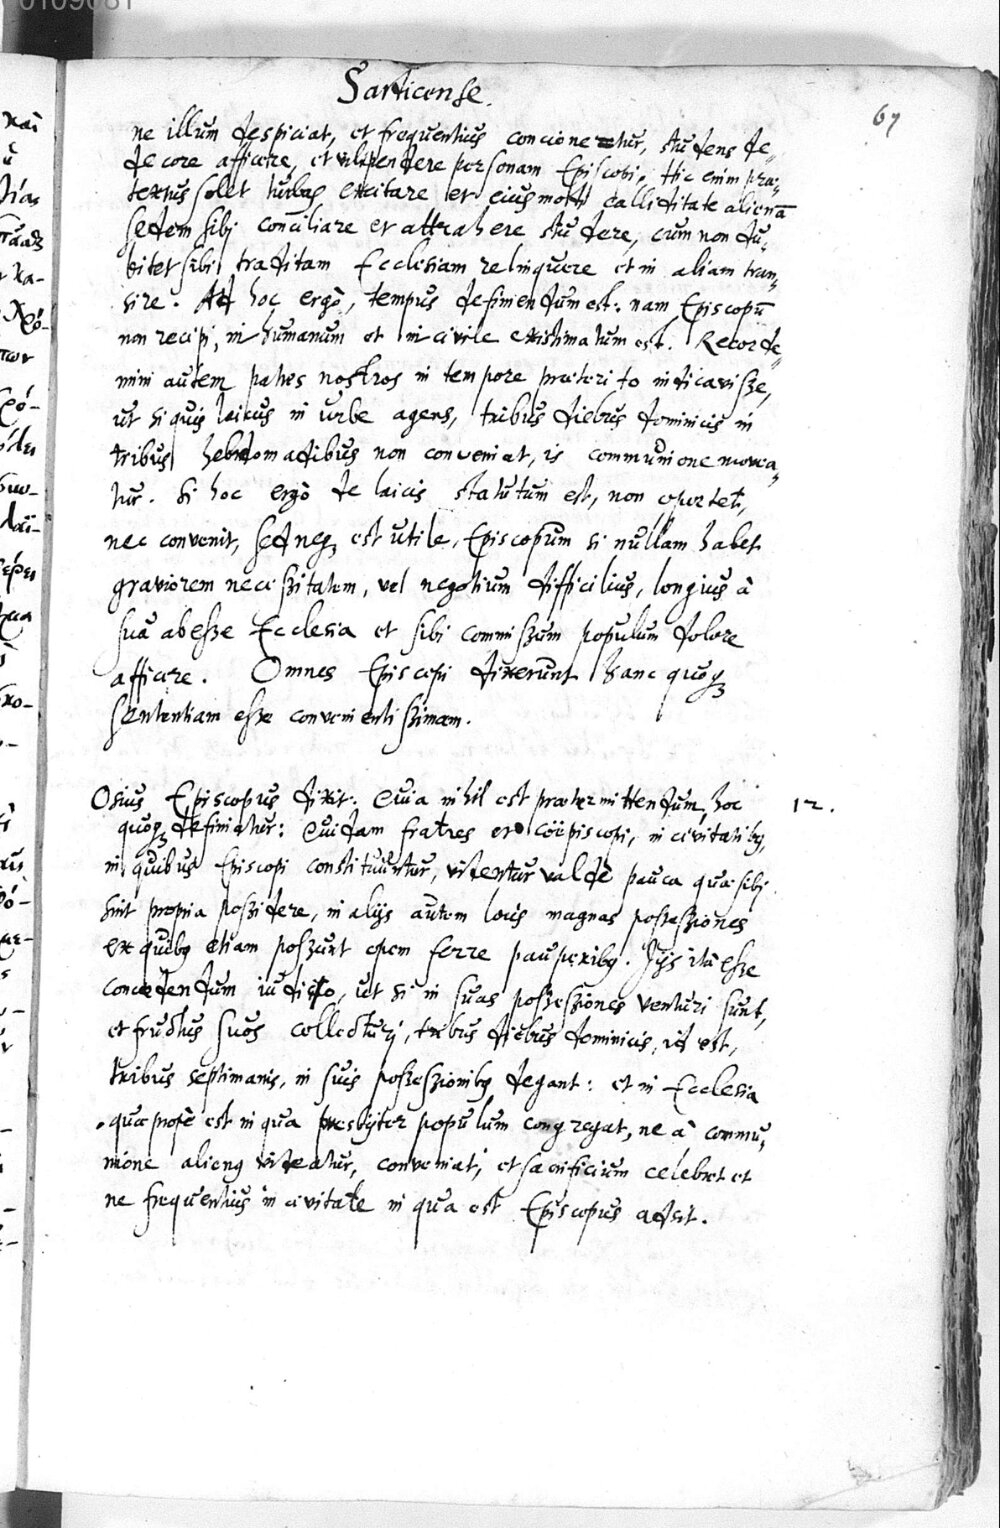 0109081
Sardicense.
67
ne illum despiciat, et frequentius concionetur, studens de-
decore afficere, et vilipendere personam Episcopi. Hic enim prae-
textus solet turbas excitare et eiusmodi calliditate alienā
sedem sibj conciliare et attrahere studere, cum non du-
bitet sibi traditam Ecclesiam relinquere et in aliam tran-
sire. Ad hoc ergò, tempus definiendum est: nam Episcopū
non recipi, inhumanum et incivile existimatum est. Recorde-
mini autem patres nostros in tempore praeterito indicavisse,
ut si quis laicus in urbe agens, tribus diebus dominicis in
tribus hebdomadibus non conveniat, is communione movea-
tur. Si hoc ergò de laicis statutum est, non oportet,
nec convenit, sed neqꝫ est utile, Episcopum si nullam habet
graviorem necessitatem, vel negotium difficilius, longius à
suâ abesse Ecclesia et sibi commissum populum dolore
afficere. Omnes Episcopi dixerunt hanc quoqꝫ
sententiam esse convenientissimam.
Osius Episcopus dixit: Quia nihil est praetermittendum, hoc 12.
quoqꝫ definiatur: Quidam fratres et coëpiscopi, in civitatibꝫ,
in quibus Episcopi constituuntur, videntur valdè pauca quae sibj
sint propria possidere, in alijs autem locis magnas possessiones
ex quibꝫ etiam possunt opem ferre pauperibꝫ. Ijs ità esse
concedendum iudico, ut si in suas possessiones venturi sunt,
et fructus suos collecturj, tribus diebus dominicis, id est,
tribus septimanis, in suis possessionibꝫ degant: et in Ecclesia
quae propè est in qua presbyter populum congregat, ne à commu-
nione alienꝫ videatur, conveniat, et sacrificium celebret et
ne frequentius in civitate in qua est Episcopus adsit.